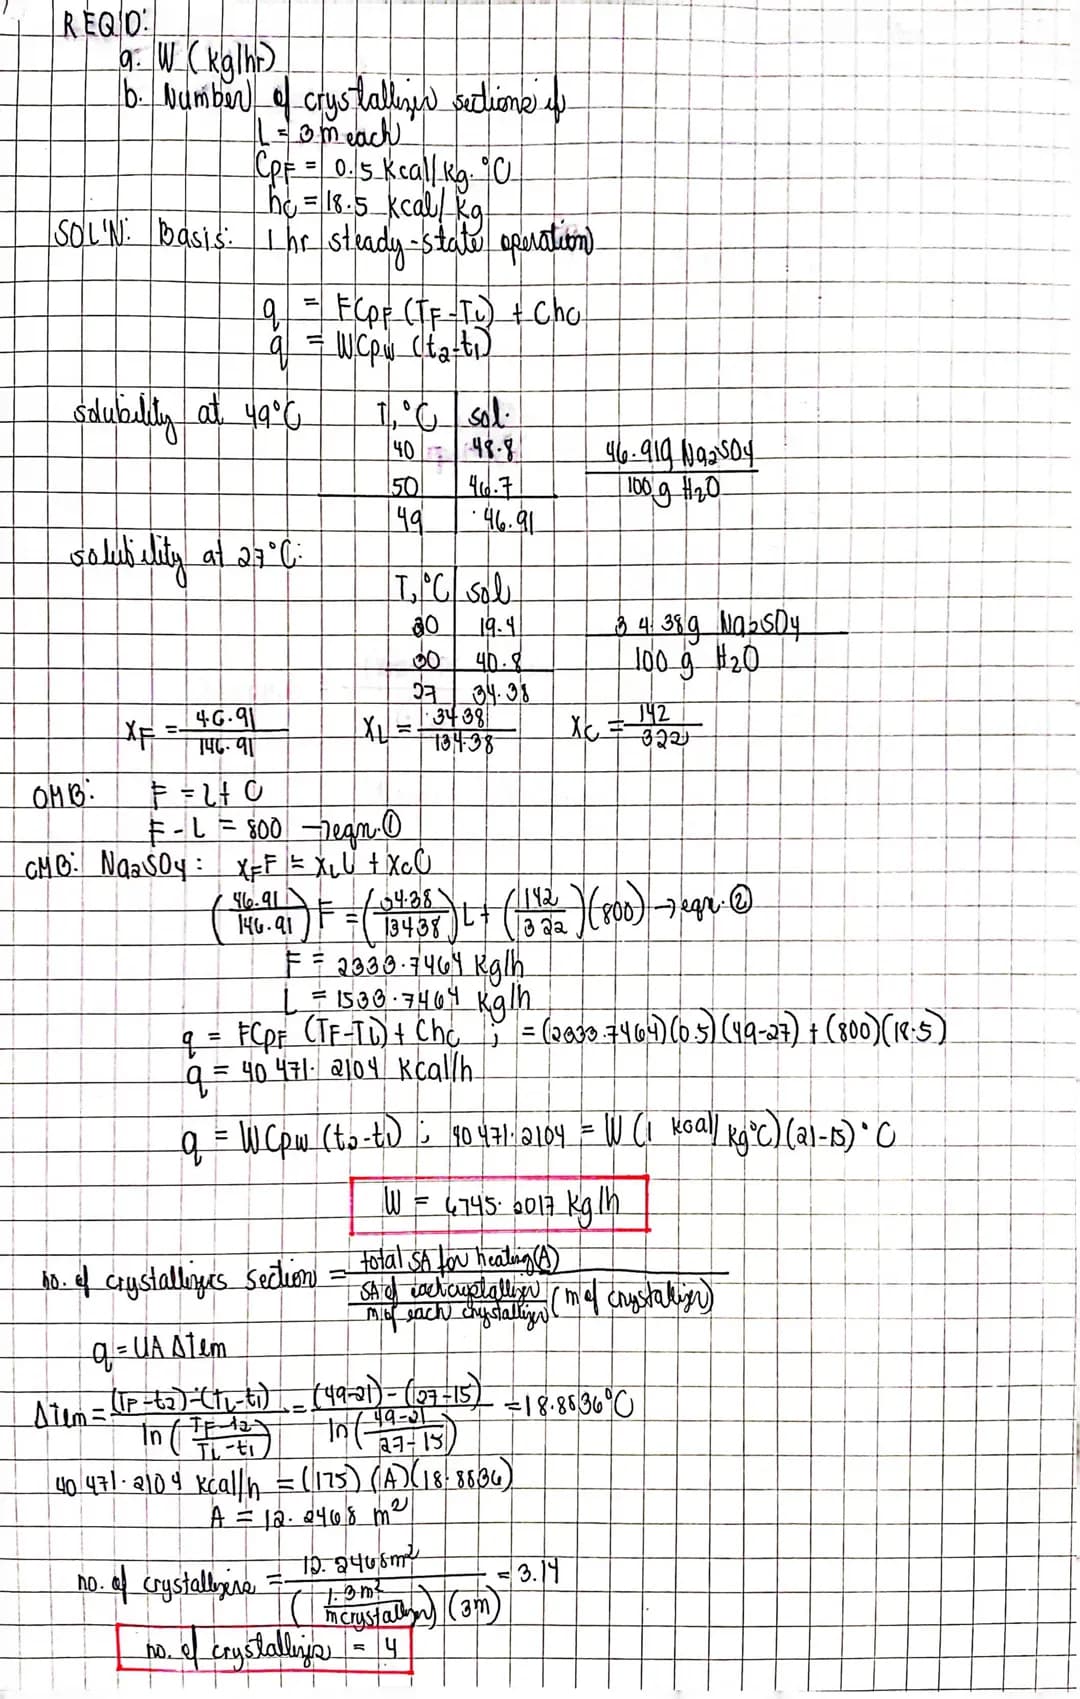 REQ'D:
a. W (kg/hr)
b. Number of crystallizer sections if
L = 3 m each
CPF = 0.5 kcal/kg.°C
hc = 18.5 kcal/kg
SOL'N: Basis: 1 hr steady-state operation
q = FCPF (TF-TL) + Chc
q = WCpw (t2-t1)
solubility at 49°C
T,°C | sol.
40 | 48.8
50 | 46.7
49 | 46.91
46.91g Na2SO4
100 g H2O
solubility at 27°C:
T,°C | sol
20 | 19.4
30 | 40.8
27 | 34.38
34.38g Na2SO4
100 g H2O
XF = 46.91/146.91 XL = 34.38/134.38 XC = 142/322
OMB: F = L + C
F - L = 800 → eqn. ①
CMB: Na2SO4: XFF = XLL + XCC
(46.91/146.91) F = (34.38/134.38) L + (142/322)(800) → eqn. ②
F = 2333.7464 kg/h
L = 1533.7464 kg/h
q = FCPF (TF-TL) + Chc ; = (2333.7464)(0.5)(49-27) + (800)(18.5)
q = 40 471.2104 kcal/h
q = WCpw (t2-t1) ; 40 471.2104 = W (1 kcal/kg°C)(21-15)°C
W = 6745.2017 kg/h
no. of crystallizers section = total SA for heating (A) / (SA of each crystallizer / m of each crystallizer) (m of crystallizer)
q = UA ΔTem
ΔTem = (TF-t2)-(TL-t1) / ln(TF-t2 / TL-t1) = (49-21)-(27-15) / ln(49-21 / 27-15) = 18.8836°C
40 471.2104 kcal/h = (175)(A)(18.8836)
A = 12.2468 m²
no. of crystallizers = 12.2468m² / (1.3m² / m crystallizer)(3m) = 3.14
no. of crystallizers = 4